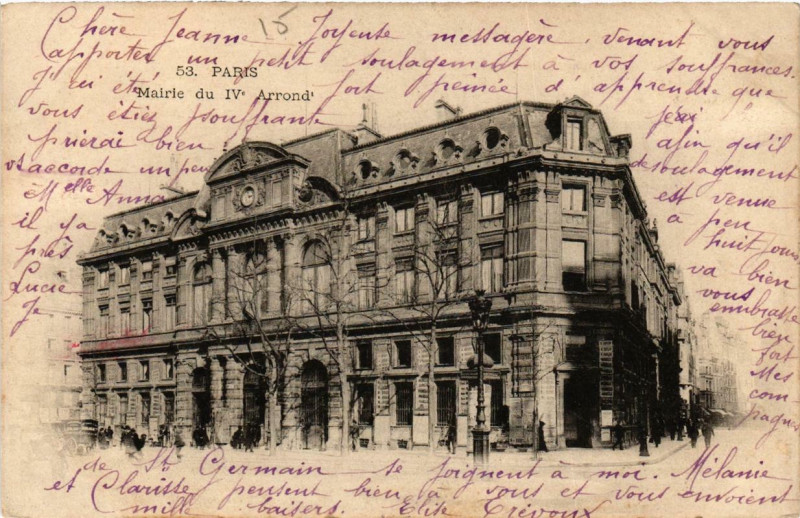 15
Chère Jeanne Joyeuse messagère, venant vous
apporter un petit soulagement à vos souffrances.
53. PARIS
Mairie du IVe Arrondt
J'ai été fort peinée d'apprendre que
vous étiez souffrante j'ai
prierai bien afin qu'il
vs accorde un peu de soulagement
Melle Anna est venue
il y a à peu
près huit jours
Lucie va bien
Je vous embrasse
bien
fort
Mes
com
pagnes
de St Germain se joignent à moi. Mélanie
et Clarisse pensent bien à vous et vous envoient
mille baisers. Elise Trévoux